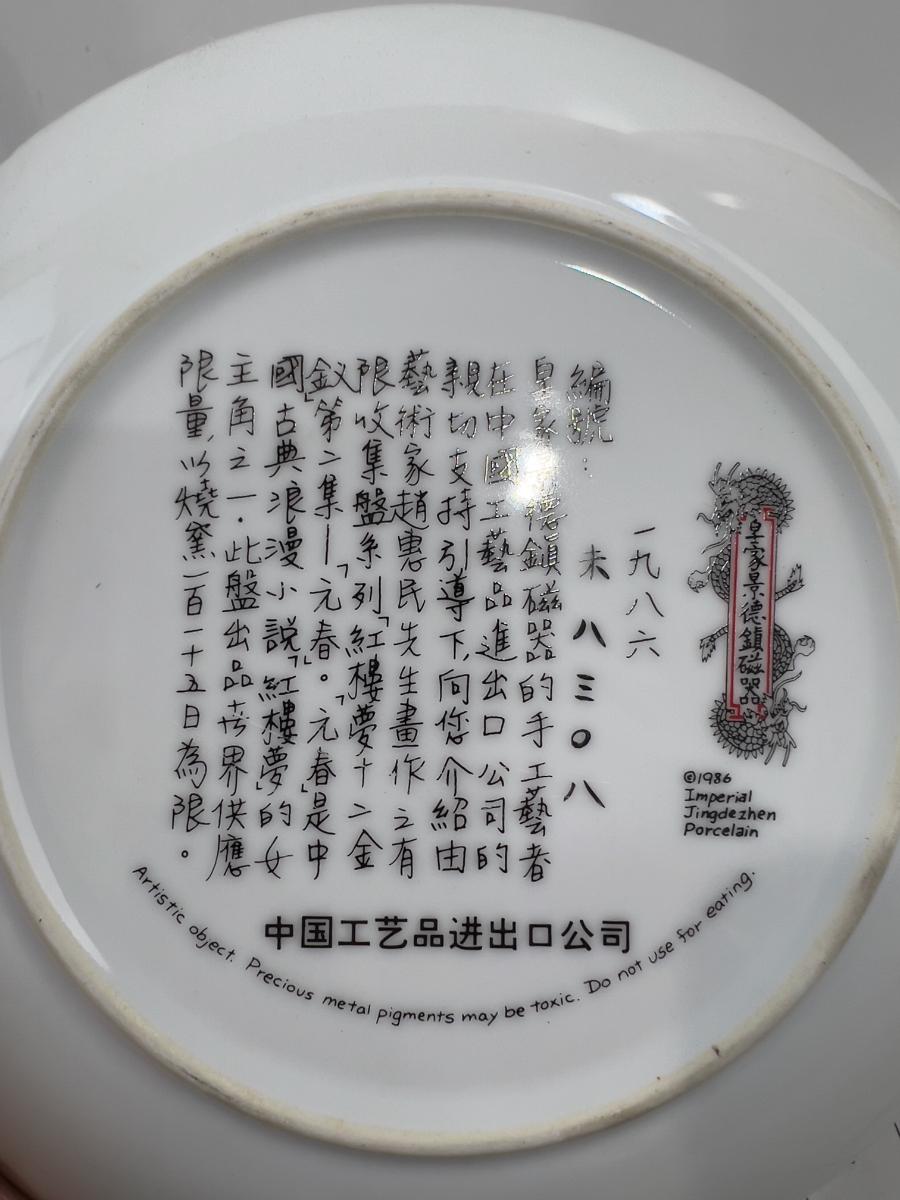 皇家景德鎮磁器
©1986
Imperial
Jingdezhen
Porcelain
一九八六
編號：未八三〇八
皇家德鎮磁器的手工藝者
在中國工藝品進出口公司的
親切支持引導下，向您介紹由
藝術家趙惠民先生畫作之有
限收集盤系列「紅樓夢十二金
釵」第二集—「元春」。「元春」是中
國古典浪漫小說「紅樓夢」的女
主角之一.此盤出品世界供應
限量，以燒窯一百一十五日為限。
中国工艺品进出口公司
Artistic object. Precious metal pigments may be toxic. Do not use for eating.